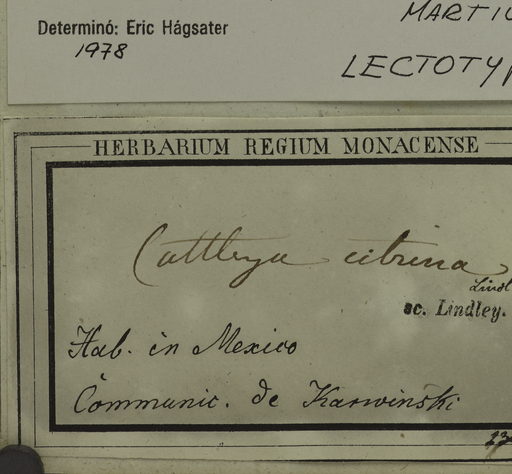 MARTIU
Determinó: Eric Hágsater
1978
LECTOTYP
HERBARIUM REGIUM MONACENSE
Cattleya citrina
Lindl
sc. Lindley.
Hab. in Mexico
Communic. de Karwinski